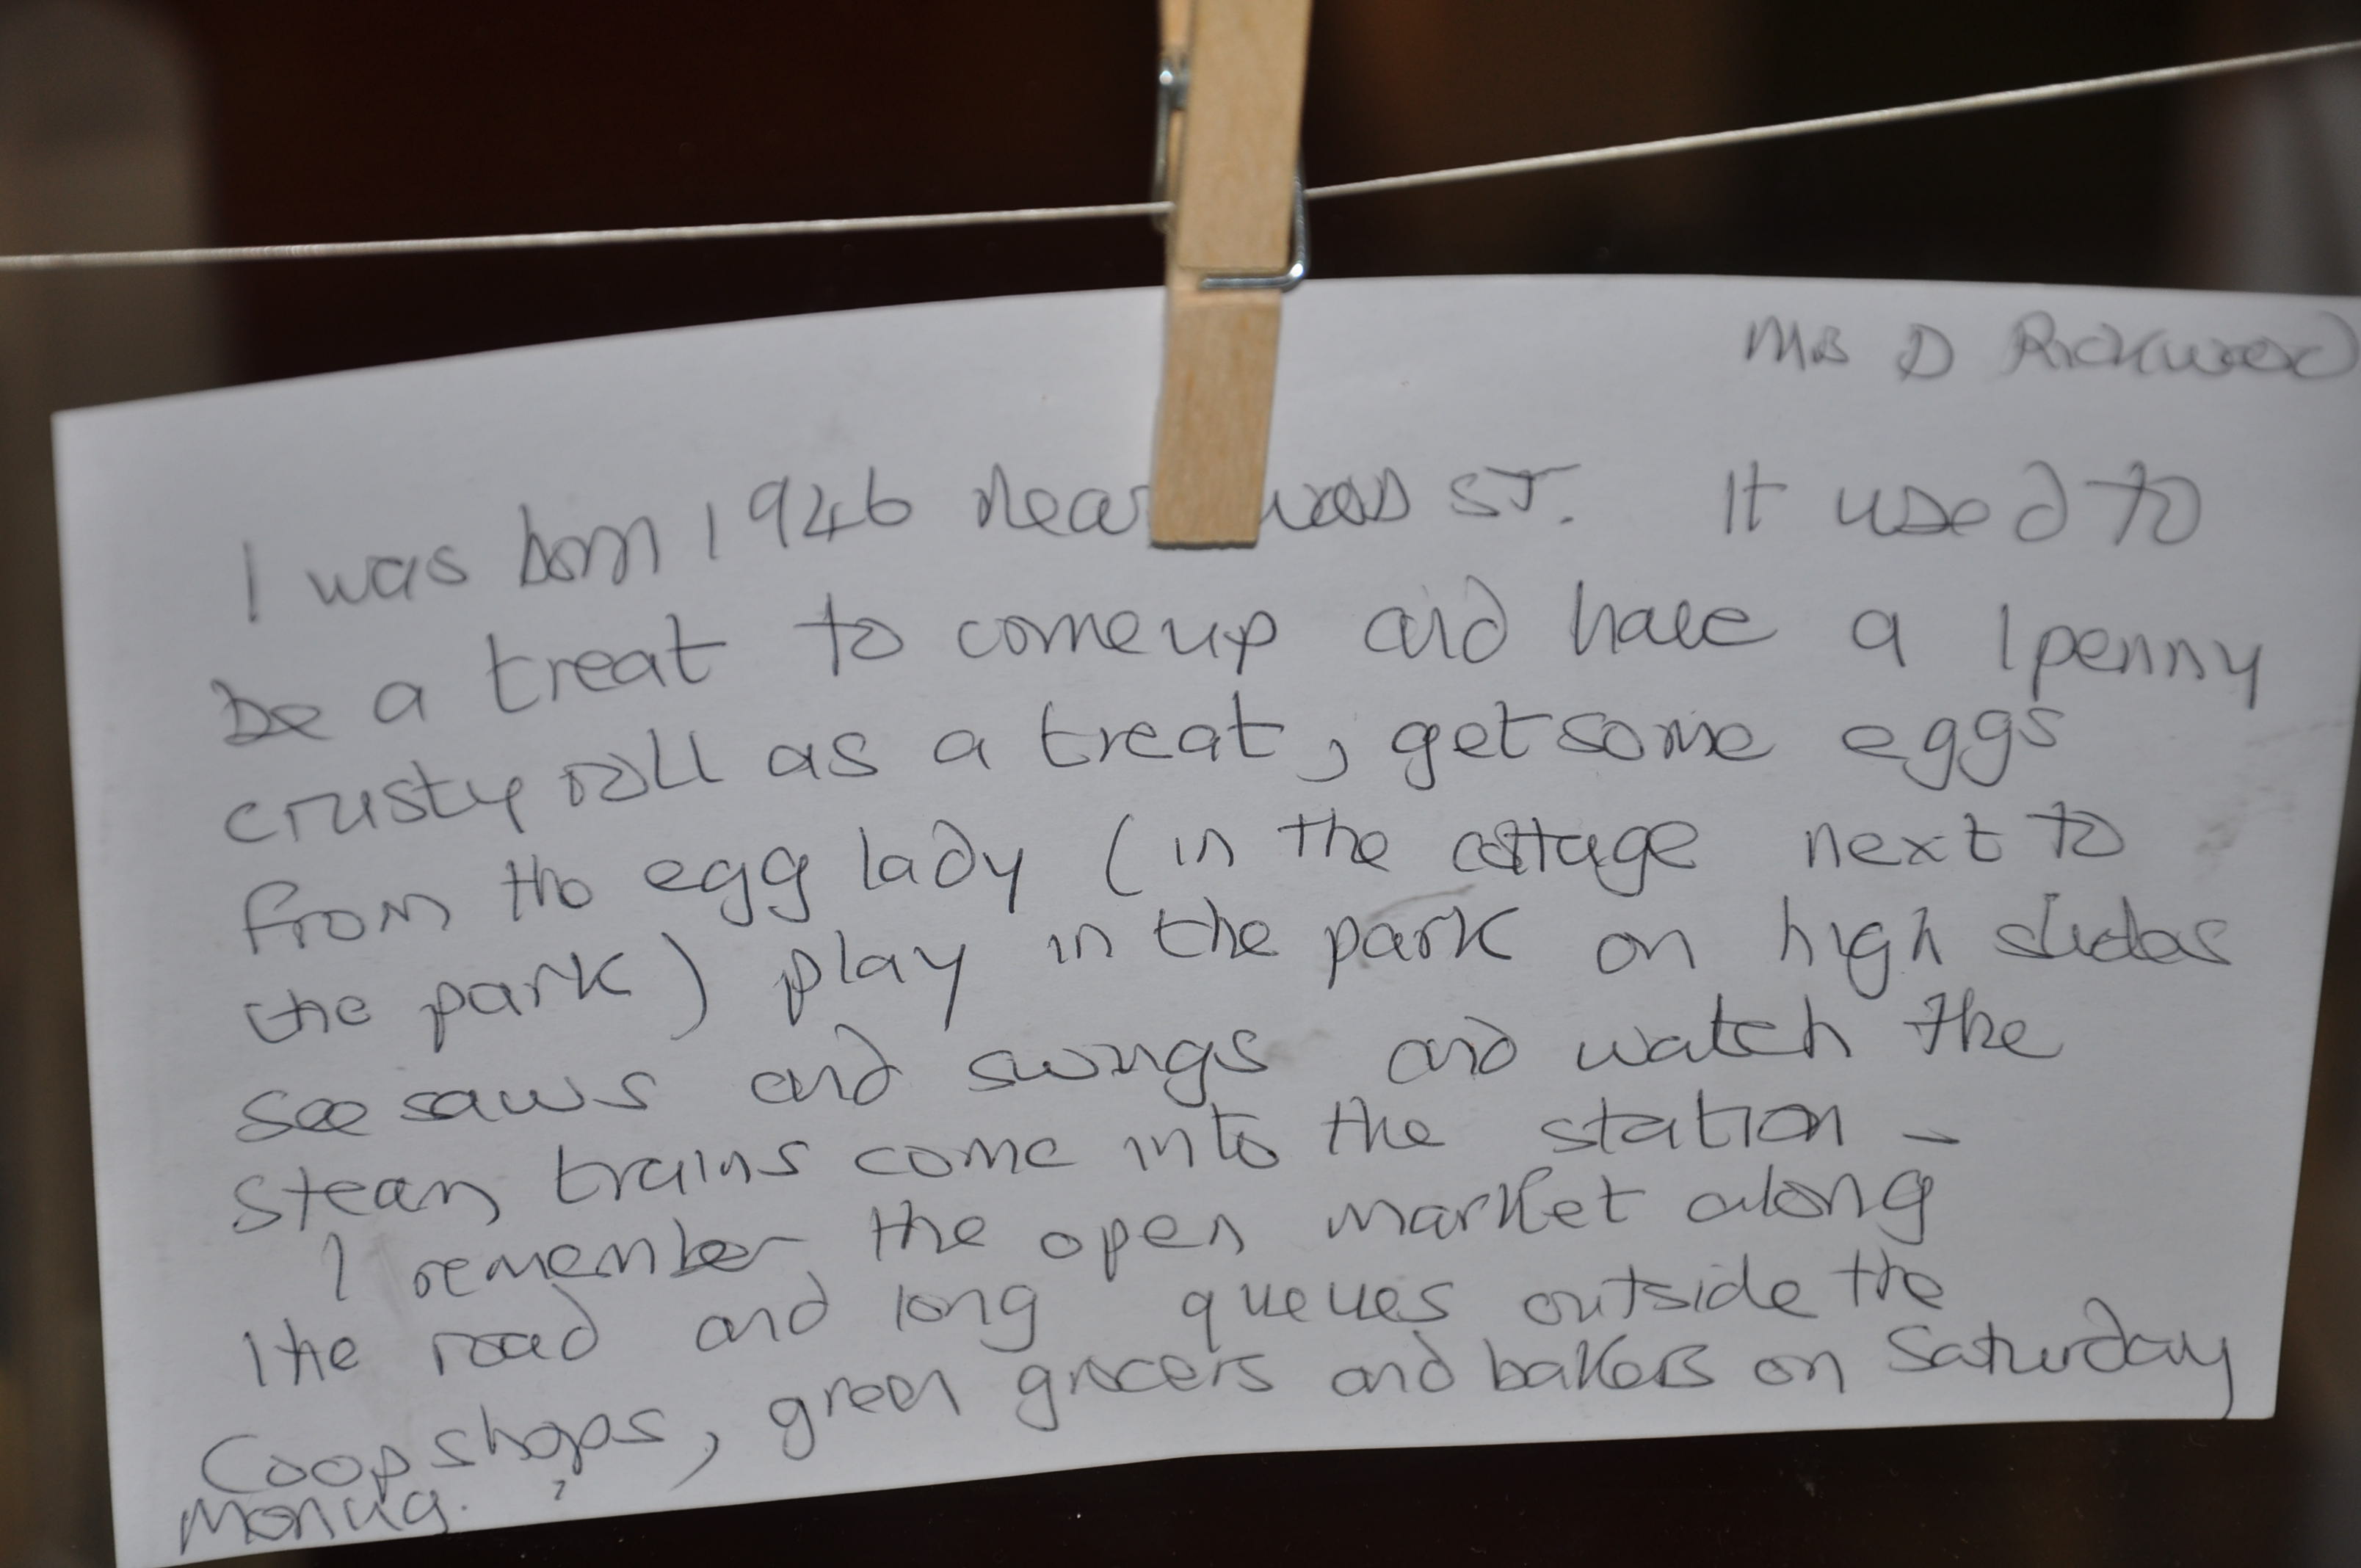 Mrs D Rickwood
I was born 1946 near St. It used to
be a treat to come up and have a 1 penny
crusty roll as a treat, get some eggs
from the egg lady (in the cottage next to
the park) play in the park on high slides
see saws and swings and watch the
steam trains come into the station -
I remember the open market along
the road and long queues outside the
Coop shops, green grocers and bakers on Saturday
Morning.